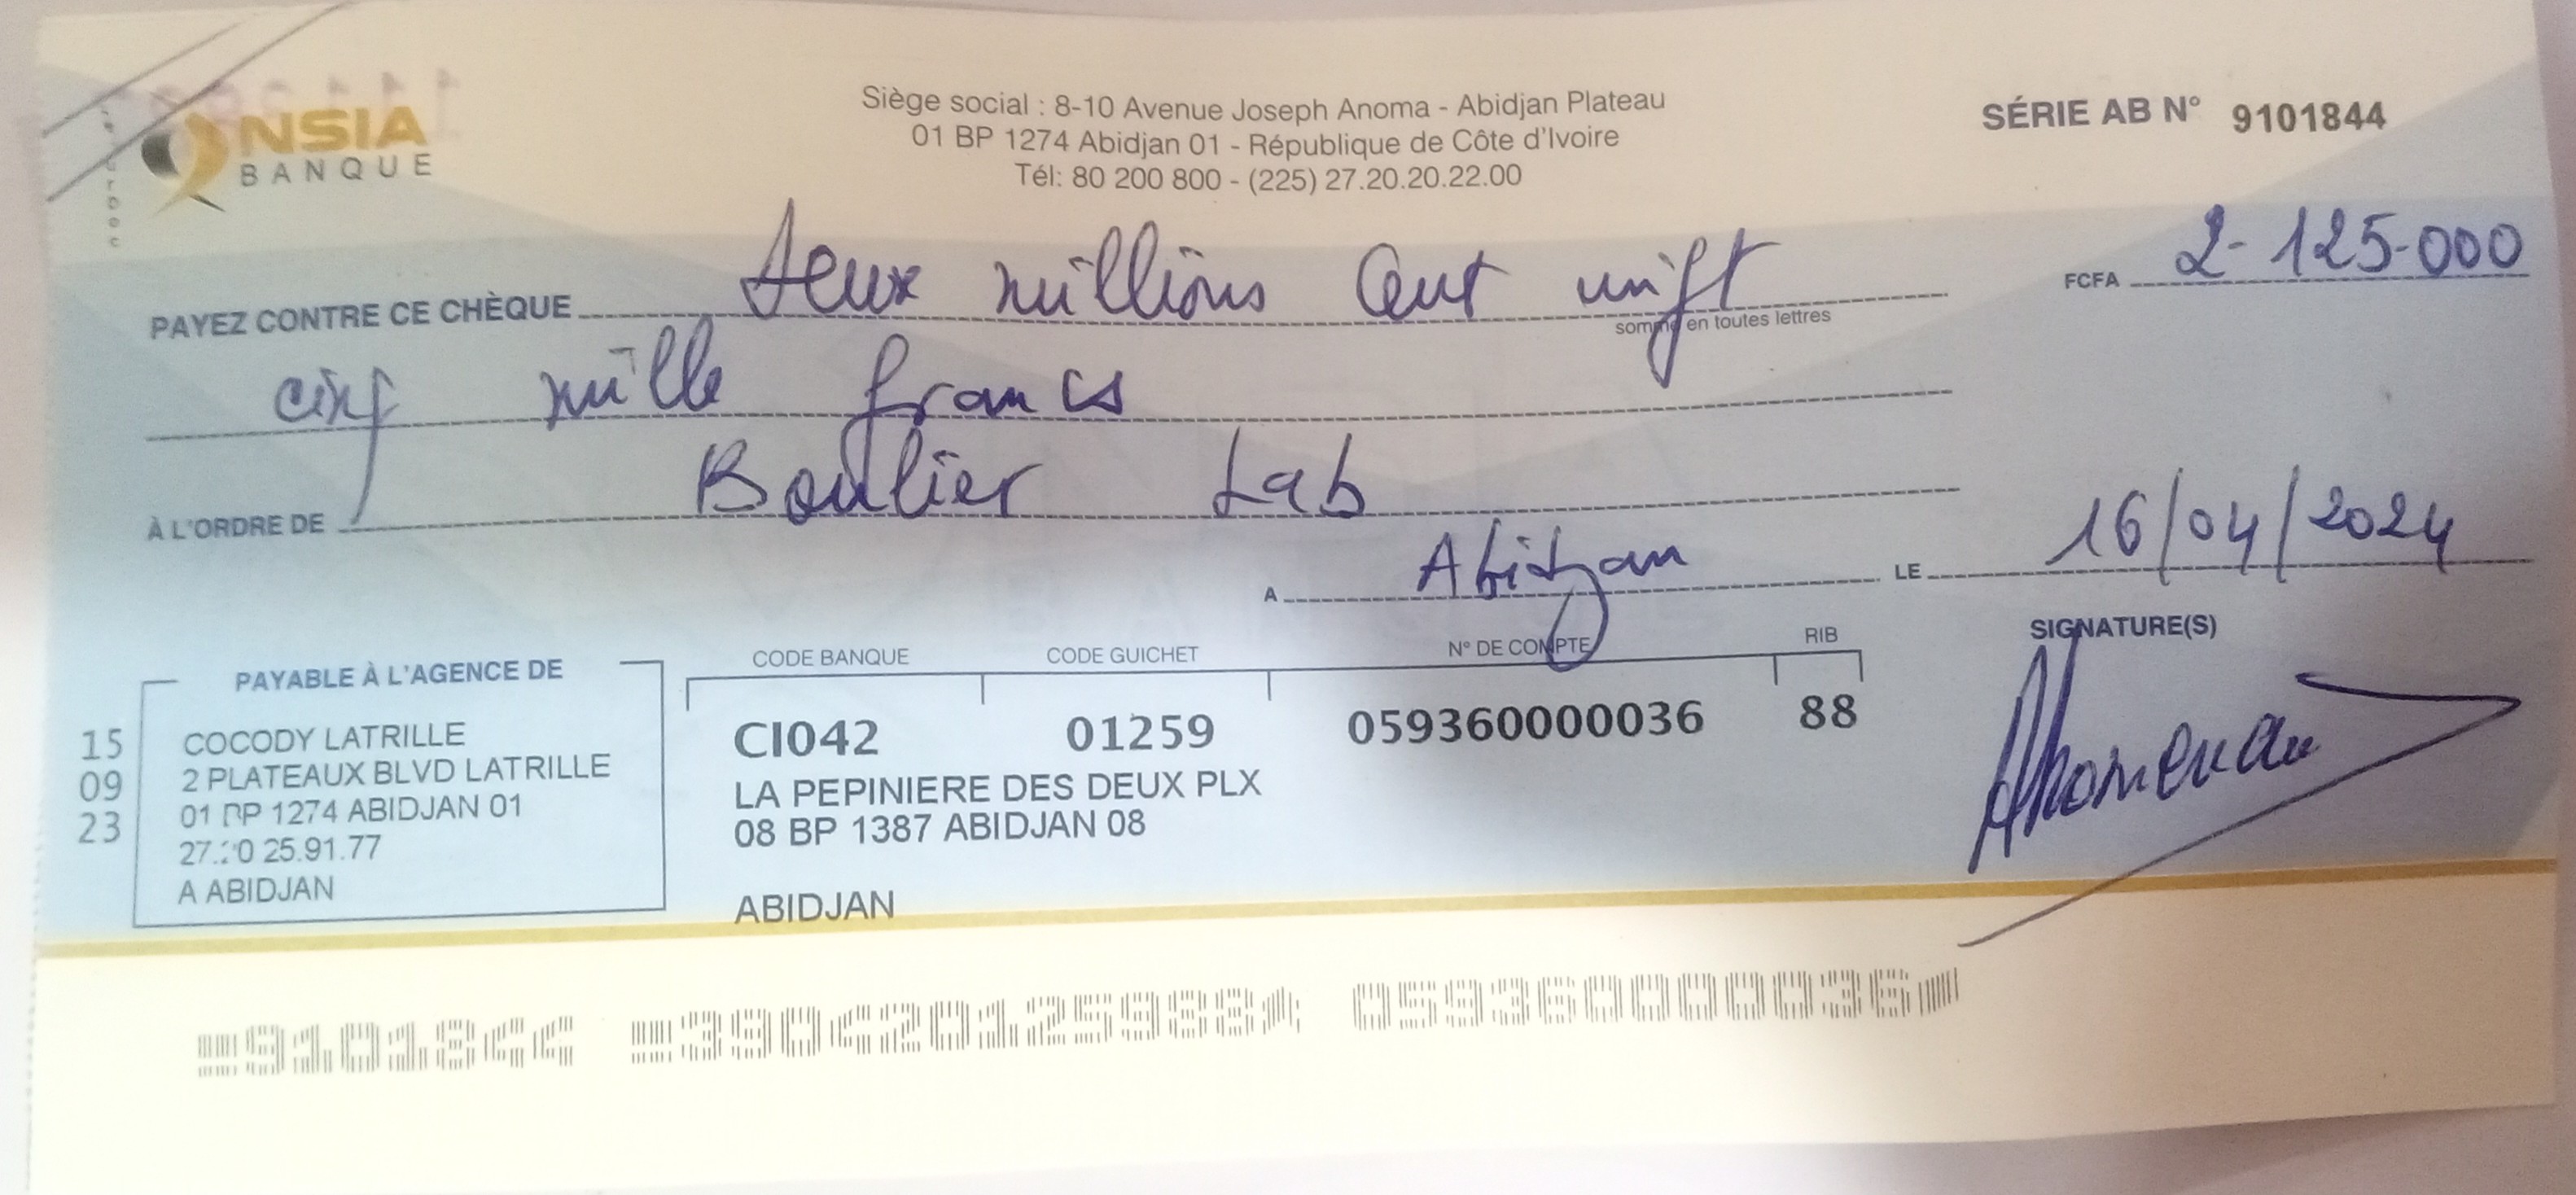 NSIA
BANQUE
Siège social : 8-10 Avenue Joseph Anoma - Abidjan Plateau
01 BP 1274 Abidjan 01 - République de Côte d'Ivoire
Tél: 80 200 800 - (225) 27.20.20.22.00
SÉRIE AB N° 9101844
PAYEZ CONTRE CE CHÈQUE deux millions cent vingt
FCFA 2-125-000
somme en toutes lettres
cinq mille francs
À L'ORDRE DE Boulier Lab
A Abidjan LE 16/04/2024
PAYABLE À L'AGENCE DE
COCODY LATRILLE
2 PLATEAUX BLVD LATRILLE
01 BP 1274 ABIDJAN 01
25.91.77
A ABIDJAN
15
09
23
CODE BANQUE CODE GUICHET N° DE COMPTE RIB
CI042 01259 059360000036 88
LA PEPINIERE DES DEUX PLX
08 BP 1387 ABIDJAN 08
ABIDJAN
SIGNATURE(S)
9101844 390420125988 059360000036